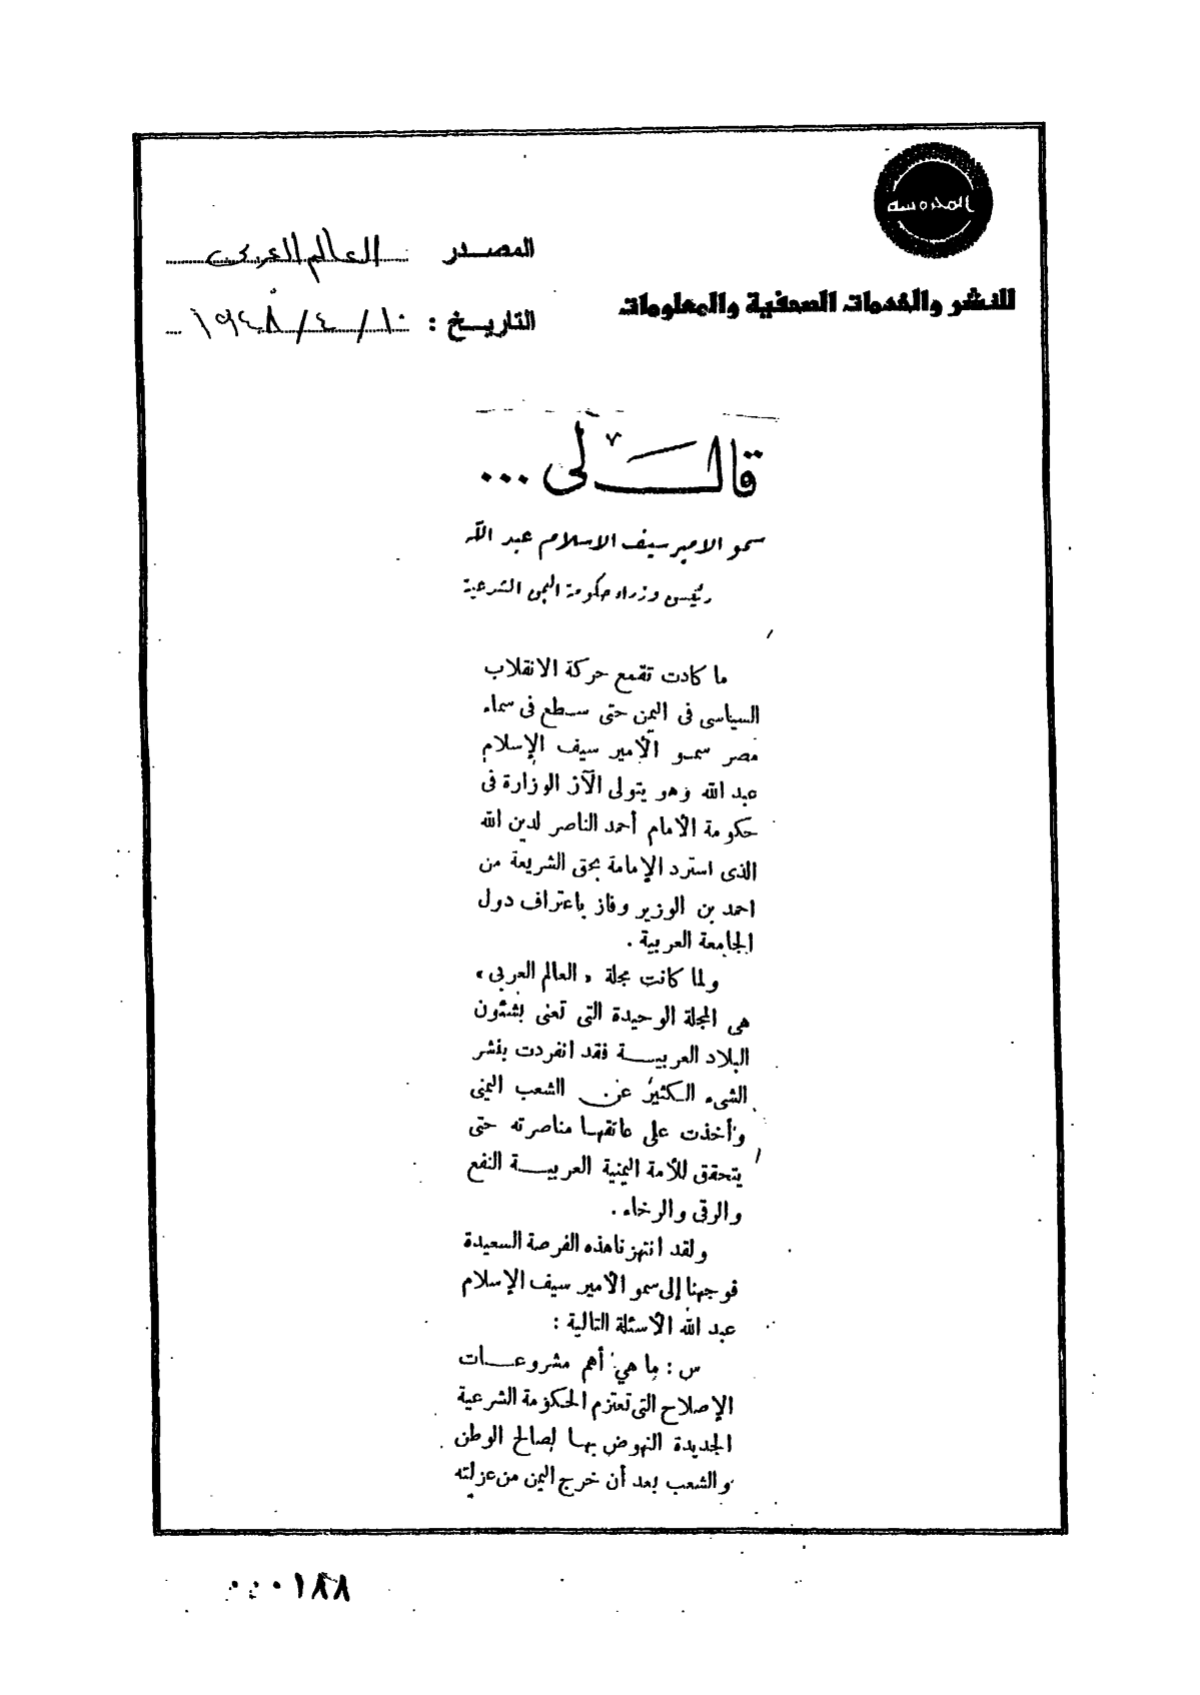 المحروسة
للنشر والخدمات الصحفية والمعلومات
المصدر العالم العربى
التاريخ : ١٠/٤/١٩٤٨
قال لى ...
سمو الامير سيف الاسلام عبد الله
رئيس وزراء حكومة اليمن الشرعية
ما كادت تقمع حركة الانقلاب
السياسى فى اليمن حتى سطع فى سماء
مصر سمو الأمير سيف الإسلام
عبد الله وهو يتولى الآن الوزارة فى
حكومة الامام أحمد الناصر لدين الله
الذى استرد الإمامة بحق الشريعة من
احمد بن الوزير وفاز باعتراف دول
الجامعة العربية .
ولما كانت مجلة « العالم العربى »
هى المجلة الوحيدة التى تعنى بشئون
البلاد العربية فقد انفردت بنشر
الشىء الكثير عن الشعب اليمنى
وأخذت على عاتقها مناصرته حتى
يتحقق للأمة اليمنية العربية النفع
والرقى والرخاء .
ولقد انتهزنا هذه الفرصة السعيدة
فوجهنا إلى سمو الأمير سيف الإسلام
عبد الله الأسئلة التالية :
س : ما هي أهم مشروعات
الإصلاح التى تعتزم الحكومة الشرعية
الجديدة النهوض بها لصالح الوطن
والشعب بعد أن خرج اليمن من عزلته
٠٠٠١٨٨